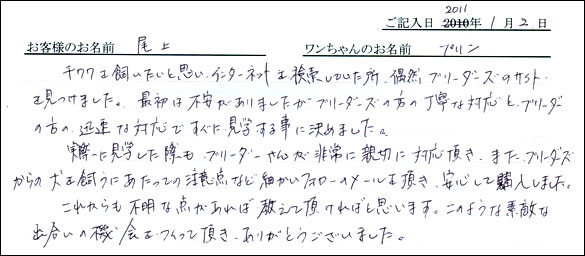 2011
ご記入日 2010年 1月 2日
お客様のお名前 尾上 ワンちゃんのお名前 プリン
チワワを飼いたいと思い、インターネットを検索していた所、偶然ブリーダーズのサイト
を見つけました。最初は不安がありましたがブリーダーズの方の丁寧な対応と、ブリーダー
の方の迅速な対応ですぐに見学する事に決めました。
実際に見学した際も、ブリーダーさんが非常に親切に対応頂き、また、ブリーダーズ
からの犬を飼うにあたっての注意点など細かいフォローのメールを頂き、安心して購入しました。
これからも不明な点があれば教えて頂ければと思います。このような素敵な
出会いの機会をつくって頂き、ありがとうございました。